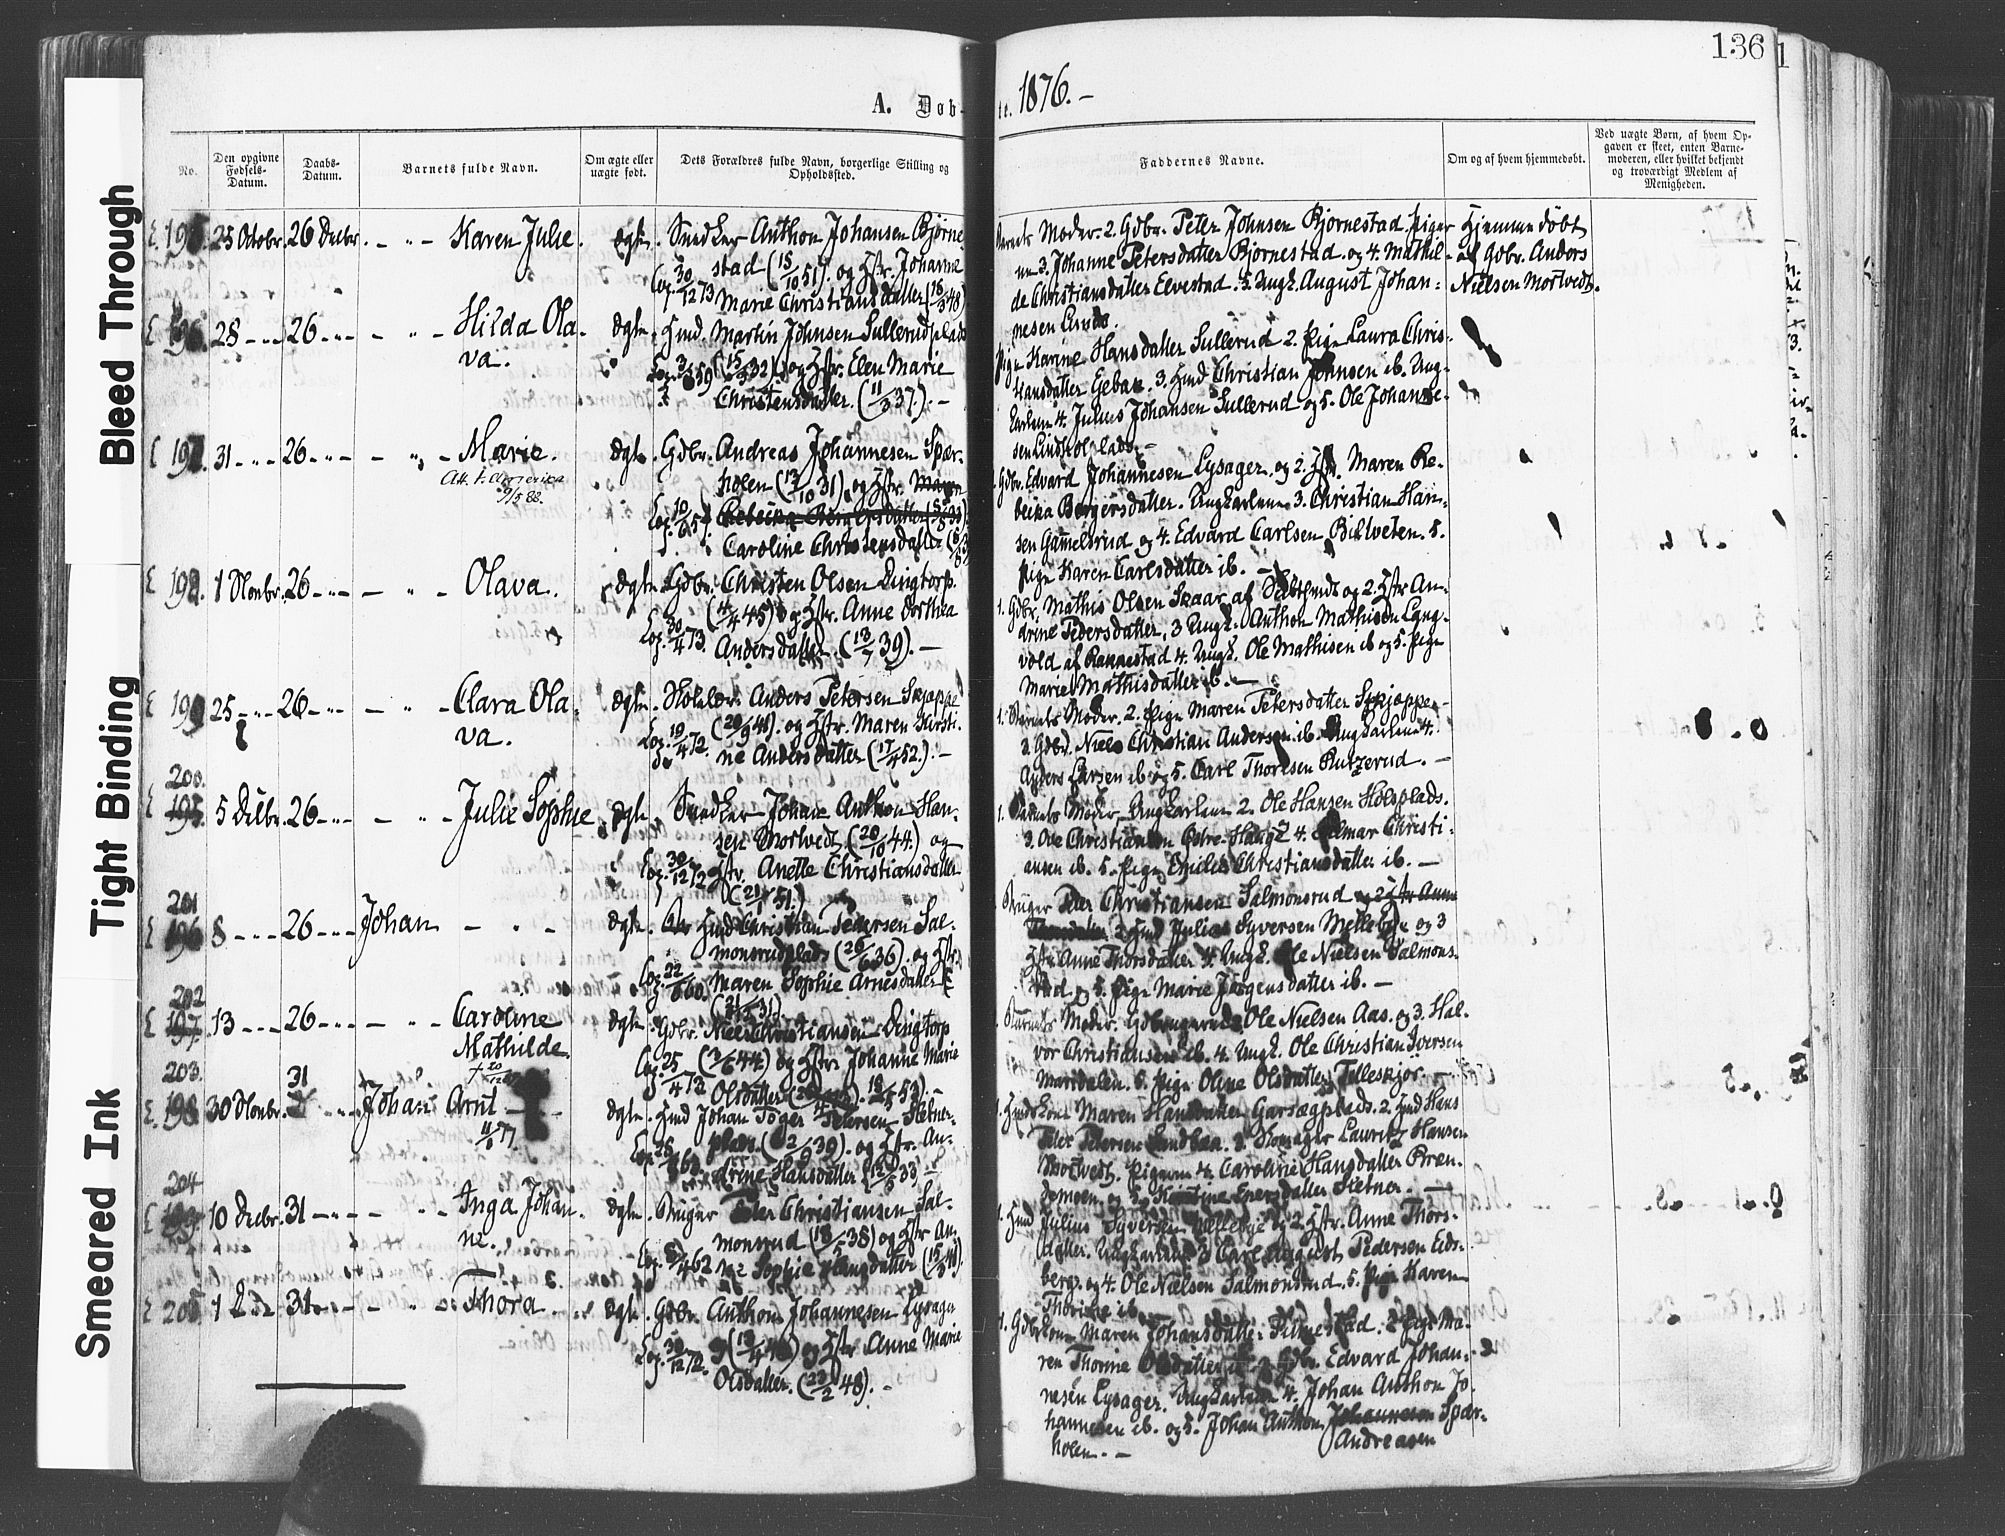 136
A. Døb-
te. 1876.-
Bleed Through
Tight Binding
Smeared Ink
No.
Den opgivne
Fødsels-
Datum.
Daabs-
Datum.
Barnets fulde Navn.
Om ægte eller
uægte født.
Dets Forældres fulde Navn, borgerlige Stilling og
Opholdssted.
Faddernes Navne.
Om og af hvem hjemmedøbt.
Ved uægte Børn, af hvem Op-
gaven er skeet, enten Barne-
moderen, eller hvilket bekjendt
og troværdigt Medlem af
Menigheden.
195. 25 Octobr. 26 Decbr. - " - Karen Julie. Ægte. Snedker Anthon Johansen Bjørne-
stad (15/10 51). og Hstr. Johanne
Cop. 30/12 73 Marie Christiansdatter (18/3 48).
Barnets Moder. 2. Gdbr. Peter Johnsen Bjørnestad Piger-
ne 3. Johanne Petersdatter Bjørnestad og 4. Mathil-
de Christiansdatter Elvestad. 5 Ungk. August Johan-
nesen Lunde.
Hjemmedøbt
af Gdbr. Anders
Nielsen Mortvedt.
196 28 - 26 - - " - Hilda Ola-
va. Ægte. Hmd. Martin Johnsen Sullerudplads
(15/3 32) og Hstr. Elen Marie
Christensdatter. (11/3 37). -
Pige Karine Hansdatter Sullerud 2. Pige Laura Chris-
Hansdatter Egebak. 3. Hmd Christian Johnsen ib. Ung-
karlene 4. Julius Johansen Sullerud og 5. Ole Johanne-
sen Lindholplads. -
197. 31 - 26 - - " - Marie.
Att. t. Amerika
9/5 88.
Ægte. Gdbr. Andreas Johannesen Spær-
holen (13/10 31). og Hstr. Maren
Cop. 10/ 65 Rebecka Børgersdatter
Caroline Christensdatter
Gdbr. Edvard Johannesen Lysager. og 2. Hstr. Maren Re-
becka Børgersdatter. Ungkarlene 3. Christian Han-
sen Gamelsrud og 4. Edvard Carlsen Bilitveten. 5.
Pige Karen Carlsdatter ib. -
198. 1 Novbr. 26 - - " - Olava. Ægte. Gdbr. Christen Olsen Dingtorp.
(4/4 45) og Hstr. Anne Dorthea
Cop. 30/4 73. Andersdatter. (13/7 39). -
1. Gdbr. Mathis Olsen Skaar af og 2. Hstr An-
drine Pedersdatter, 3 Ungk. Anthon Mathisen Lyng-
vold af Rannestad 4. Ungk. Ole Mathisen ib og 5. Pige
Marie Mathisdatter ib. -
199 25 - 26 - - " - Clara Ola-
va. Ægte. Skolelær. Anders Petersen Skjæppe
(20/9 48). og Hstr. Maren Kirsti-
Cop. 19/4 72. ne Andersdatter (17/4 52.). -
1. Barnets Moder. 2. Pige Maren Petersdatter Skjæppe
3. Gdbr. Niels Christian Andersen ib. Ungkarlene 4.
Anders Larsen ib og 5. Carl Thoresen Rutzerud. -
200.
195. 5 Decbr. 26 - - " - Julie Sophie Ægte. Snedker Johan Anthon Han-
sen Mortvedt (20/10 44) og
Cop. 30/12 72 Hstr. Anette Christiansdatter
(21/1 51.)
1. Barnets Moder Ungkarlene 2. Ole Hansen Holsplads.
3. Ole Christiansen Østre-Haug 4. Hilmar Christi-
ansen ib. 5. Pige Emilie Christiansdatter ib. -
201
196 8 - 26 - Johan - " - Ægte. Hmd Christian Pedersen Sal-
monsrudplads (26/6 36). og Hstr.
Cop. 22/ 60. Maren Sophie Arnesdatter
(21/ 31).
Bruger Peder Christiansen Salmonsrud og 2 Hstr Anne
Thorsdatter 2 Hmd Julius Syversen Melleby og 3
Hstr. Anne Thorsdatter 4. Ungk. Ole Nielsen Salmons-
rud og 5. Pige Marie Jørgensdatter ib. -
202
197. 13 - 26 - - " - Caroline
Mathilde.
† 20/12
Ægte. Gdbr. Niels Christiansen Dingtorp
(3/6 44) og Hstr. Johanne Marie
Cop. 25/4 73 Olsdatter 18/5 53). -
Barnets Moder. Gdbrugerne 2. Ole Nielsen Aas. og 3. Hal-
vor Christiansen ib. 4. Ungk. Ole Christian Iversen
Mariedalen. 5. Pige Oline Olsdatter Telleskjør. -
203.
198 30 Novbr. 31 - Johan Arnt -
11/6 77
Ægte. Hmd Johan Toger Petersen Stetner-
plads. (2/9 39). og Hstr. An-
drine Hansdatter (12/5 33)
1. Hmds Kone Maren Hansdatter Garsegplads. 2. Hmd Hans
Peter Petersen Sandbæk. 3. Skomager Lauritz Hansen
Mortvedt. Pigerne 4. Caroline Hansdatter Bræn-
demoen og 5. Kirstine Evensdatter Stetner. -
204
199 10 Decbr. 31 - - " - Inga Johan-
ne. Ægte. Bruger Peder Christiansen Sal-
monsrud (18/5 38) og Hstr. An-
Cop. 8/4 62 ne Sophie Hansdatter (15/3 41).
1. Hmd Julius Syversen Melleby og 2. Hstr. Anne Thors-
datter. Ungkarlene 3 Carl August Pedersen Eids-
berg. og 4. Ole Nielsen Salmonsrud. 5. Pige Karen
Thorine ib. -
205 1 31 - - " - Thora. Ægte. Gdbr. Anthon Johannesen Lysager
(13/4 ) og Hstr. Anne Marie
Cop. 30/12 72. Olsdatter. (23/2 48). -
1. Gdbrkone Maren Johansdatter Rimestad. 2 Pige Ma-
ren Thorine Olsdatter ib 3 Gdbr. Edvard Johan-
nesen Lysager. Ungkarlene 4. Johan Anthon Jo-
hannesen ib. og 5. Johan Anthon Johannesen Spær-
Andreasen
holen. -